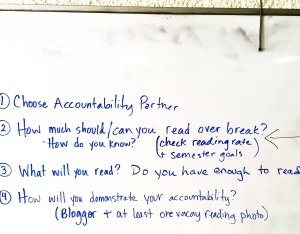 ① Choose Accountability Partner
② How much should/can you read over break?
- How do you know? (check reading rate
+ semester goals)
③ What will you read? Do you have enough to read
④ How will you demonstrate your accountability?
(Blogger + at least one vacay reading photo)